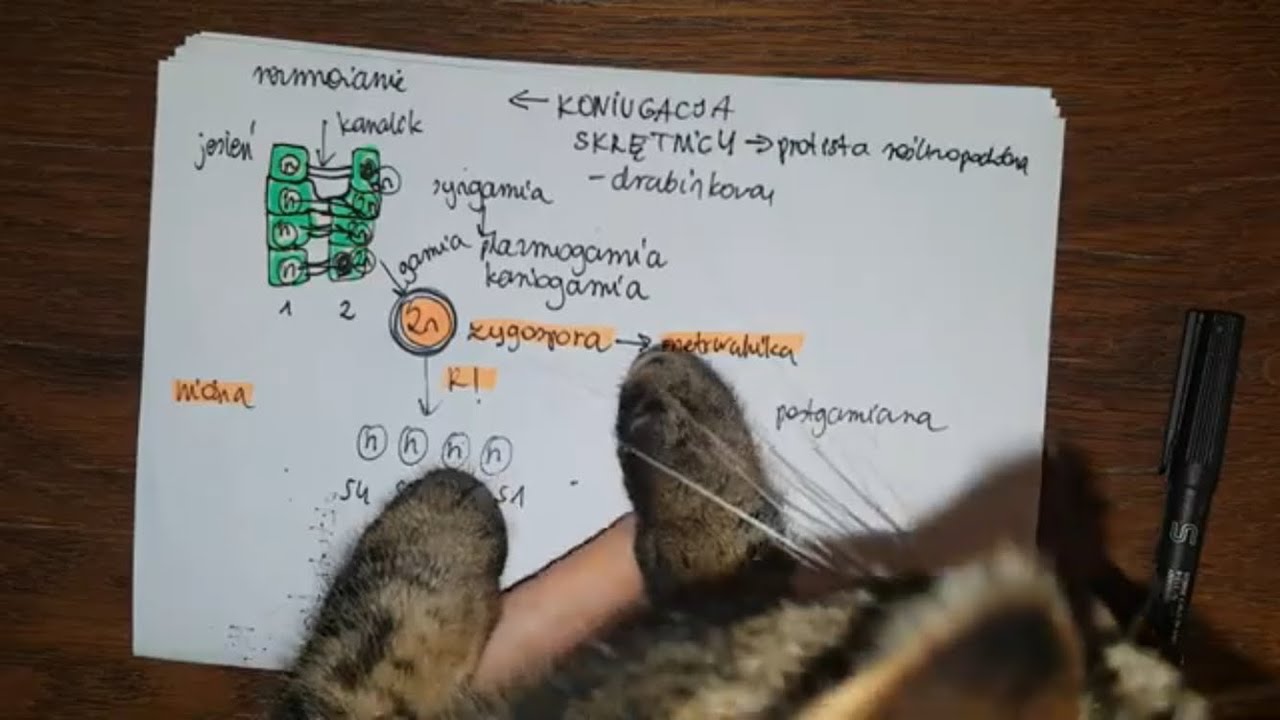 rozmnażanie
← KONIUGACJA
kanalik
SKRĘTNICY → protista roślinopodobne
jesień
- drabinkowa
n n
n 2n
n 2n
n 2n
syngamia
gamia plazmogamia
kariogamia
1 2
2n zygospora → metwalnika
R!
wiosna
postgamiana
n n n n
S4 S1
S